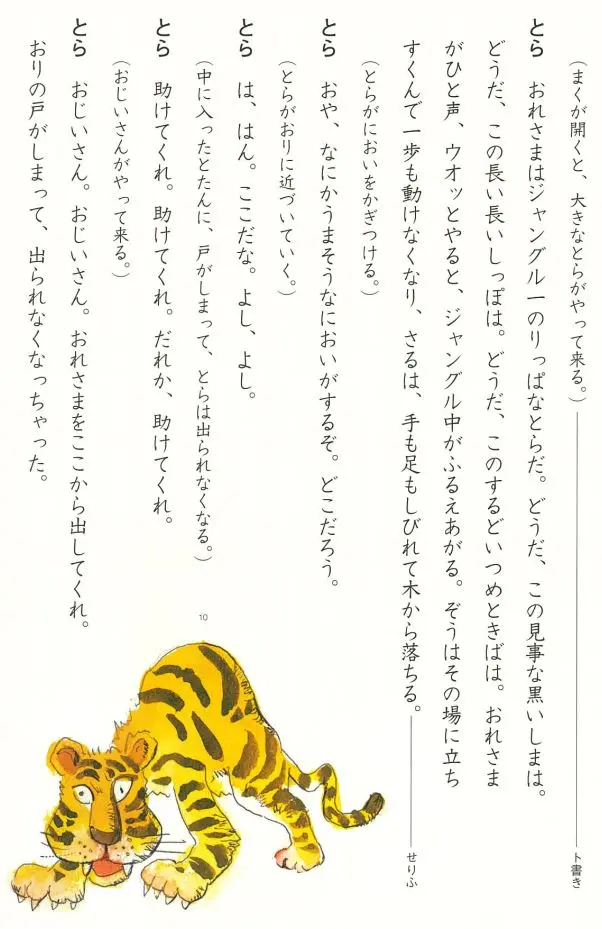 （まくが開くと、大きなとらがやって来る。）
ト書き
とら　おれさまはジャングル一のりっぱなとらだ。どうだ、この見事な黒いしまは。
どうだ、この長い長いしっぽは。どうだ、このするどいつめときばは。おれさま
がひと声、ウオッとやると、ジャングル中がふるえあがる。ぞうはその場に立ち
すくんで一歩も動けなくなり、さるは、手も足もしびれて木から落ちる。
せりふ
（とらがにおいをかぎつける。）
とら　おや、なにかうまそうなにおいがするぞ。どこだろう。
（とらがおりに近づいていく。）
とら　は、はん。ここだな。よし、よし。
（中に入ったとたんに、戸がしまって、とらは出られなくなる。）
10
とら　助けてくれ。助けてくれ。だれか、助けてくれ。
（おじいさんがやって来る。）
とら　おじいさん。おじいさん。おれさまをここから出してくれ。
おりの戸がしまって、出られなくなっちゃった。